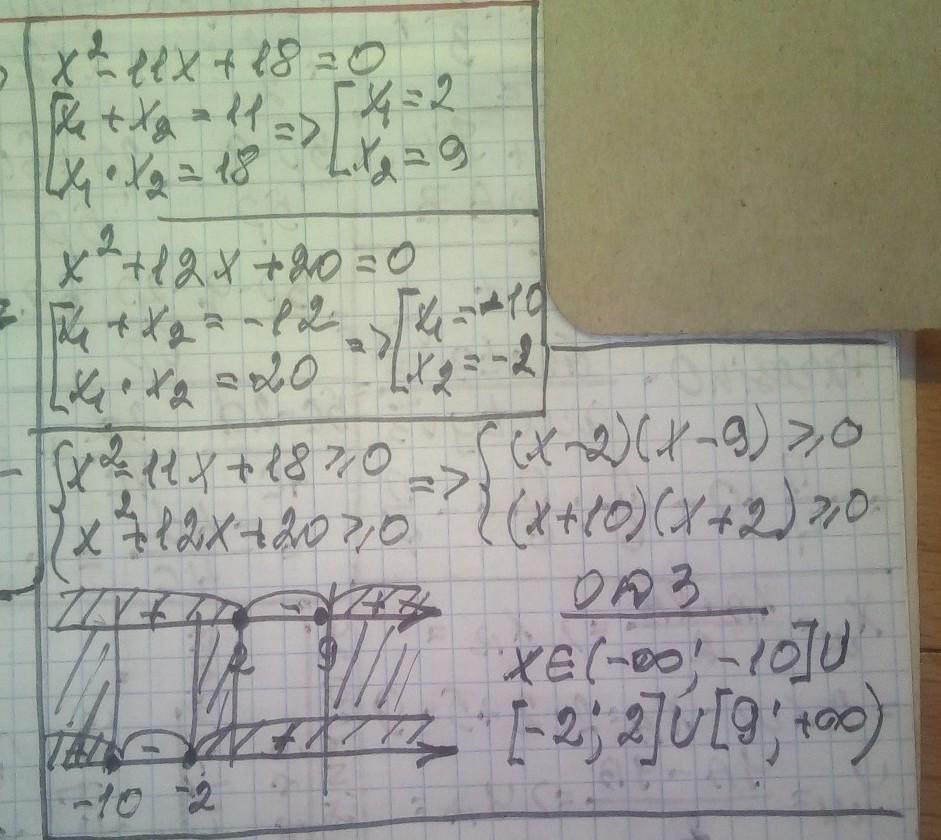 x² - 11x + 18 = 0
[x₁ + x₂ = 11
[x₁ · x₂ = 18
=> [x₁ = 2
[x₂ = 9
x² + 12x + 20 = 0
[x₁ + x₂ = -12
[x₁ · x₂ = 20
=> [x₁ = -10
[x₂ = -2
{x² - 11x + 18 ⩾ 0
{x² + 12x + 20 ⩾ 0
=> {(x-2)(x-9) ⩾ 0
{(x+10)(x+2) ⩾ 0
+ - +
2 9
+ - +
-10 -2
ОДЗ
x∈(-∞; -10]∪
[-2; 2]∪[9; +∞)